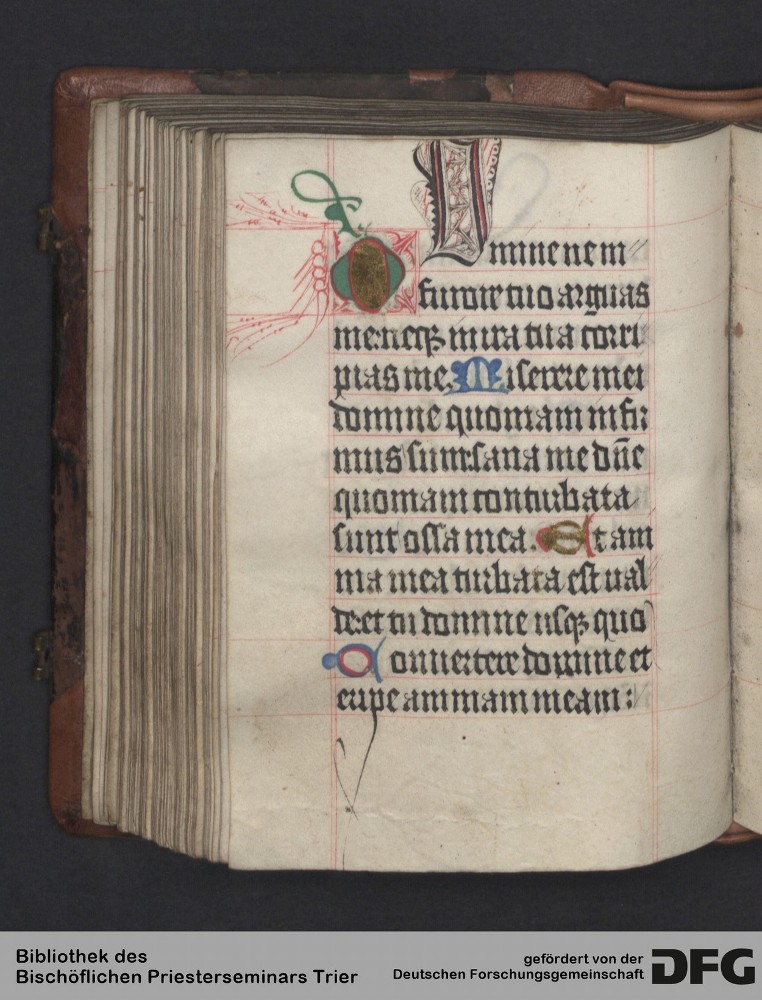 Domine ne in
furore tuo arguas
me: neqꝫ in ira tua corri
pias me. Miserere mei
domine quoniam infir
mus sum: sana me dn̄e
quoniam conturbata
sunt ossa mea. Et ani
ma mea turbata est val
de: et tu domine usqꝫ quo
Convertere domine et
eripe animam meam:
Bibliothek des
Bischöflichen Priesterseminars Trier
gefördert von der
Deutschen Forschungsgemeinschaft
DFG